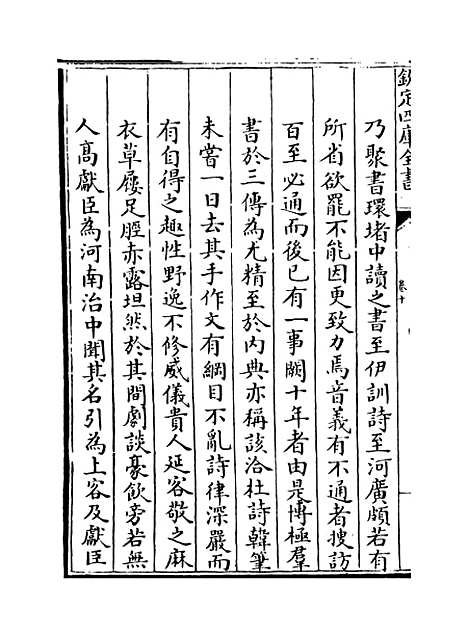 欽定四庫全書
卷十
乃聚書環堵中讀之書至伊訓詩至河廣頗若有
所省欲罷不能因更致力焉音義有不通者搜訪
百至必通而後已有一事闕十年者由是博極羣
書於三傳為尤精至於內典亦稱該洽杜詩韓筆
未嘗一日去其手作文有綱目不亂詩律深嚴而
有自得之趣性野逸不修威儀貴人延客敬之麻
衣草屨足脛赤露坦然於其間劇談豪飲旁若無
人高獻臣為河南治中聞其名引為上客及獻臣